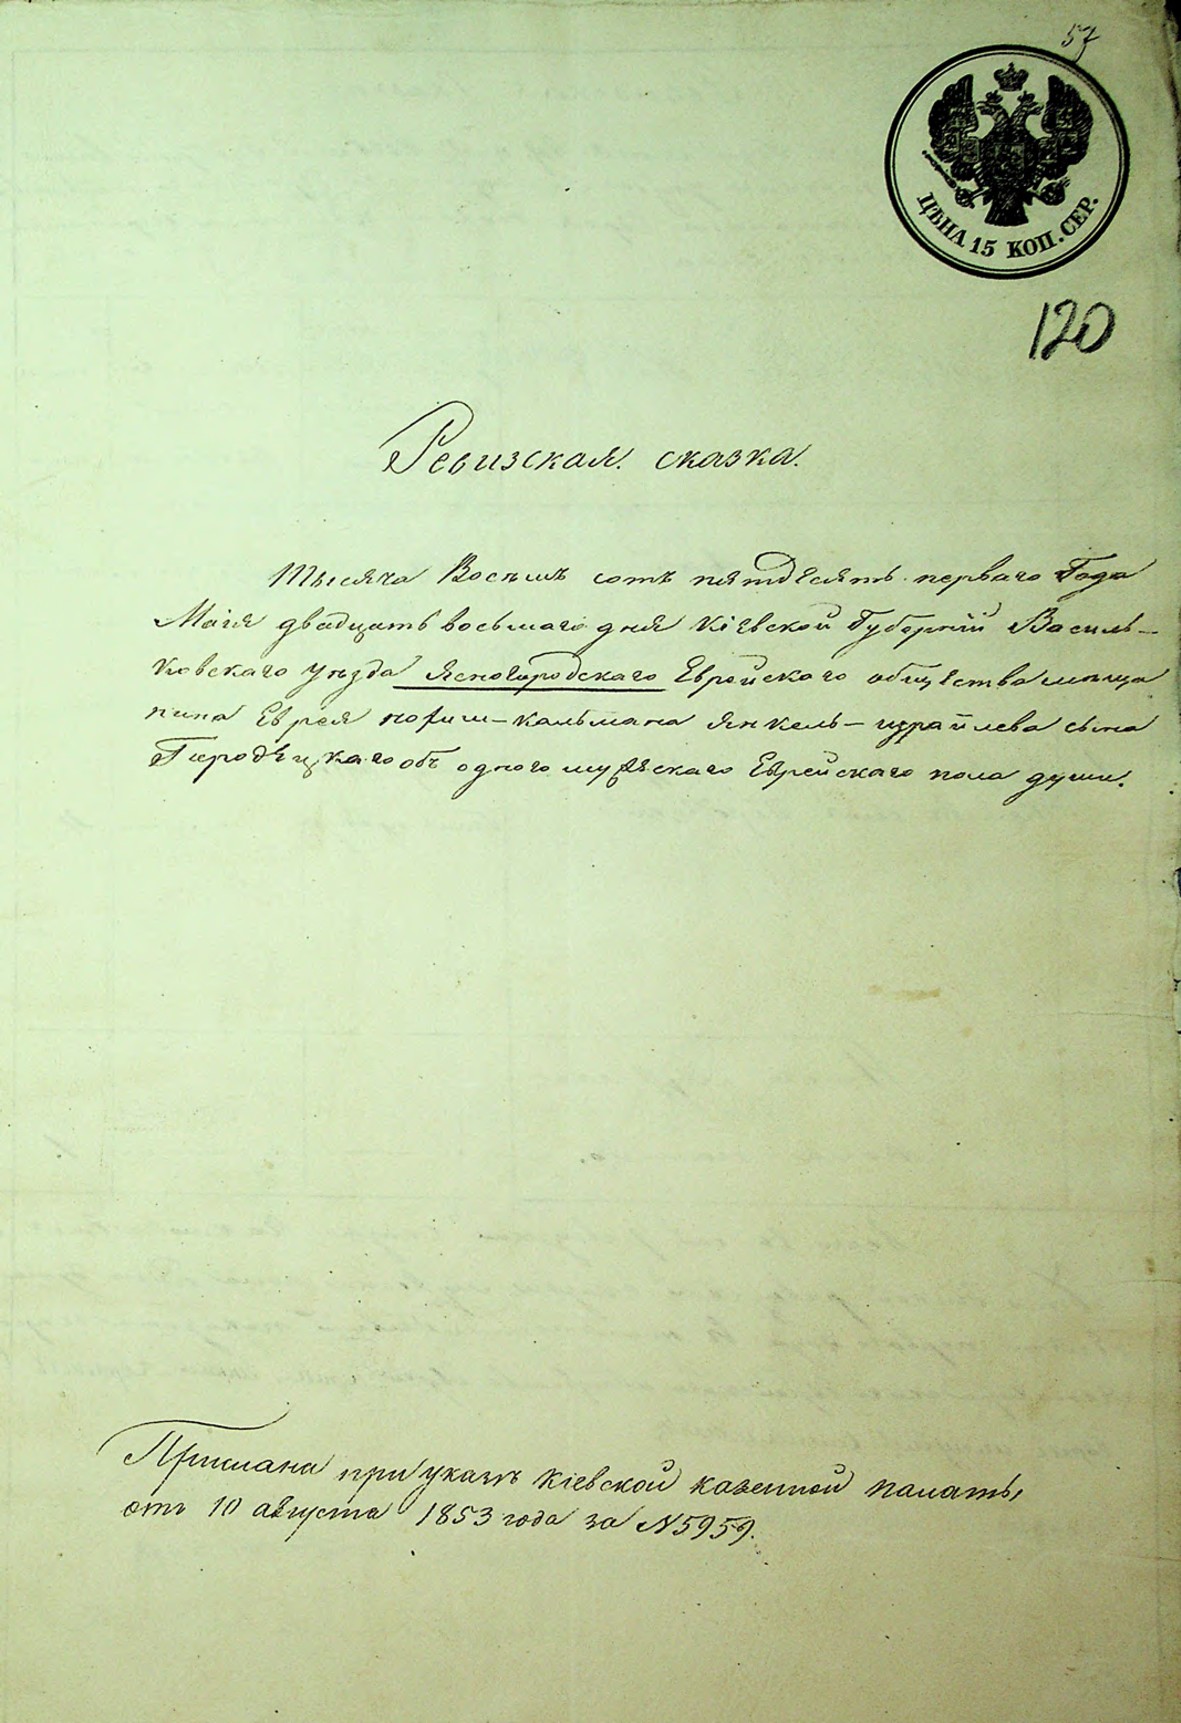 57
ЦѢНА 15 КОП. СЕР.
120
Ревизская сказка.
Тысяча Восемь сотъ пятдесятъ перваго Года
Маія двадцать восьмаго дня Кіевской Губерній Василь-
ковскаго уѣзда Ясногородскаго Еврейскаго общества мѣща
нина Еврея Янкель-израйлева сына
Городецкаго объ одного мужескаго Еврейскаго пола души.
Прислана при указѣ Кіевской казенной палаты,
отъ 10 августа 1853 года за N 5959.